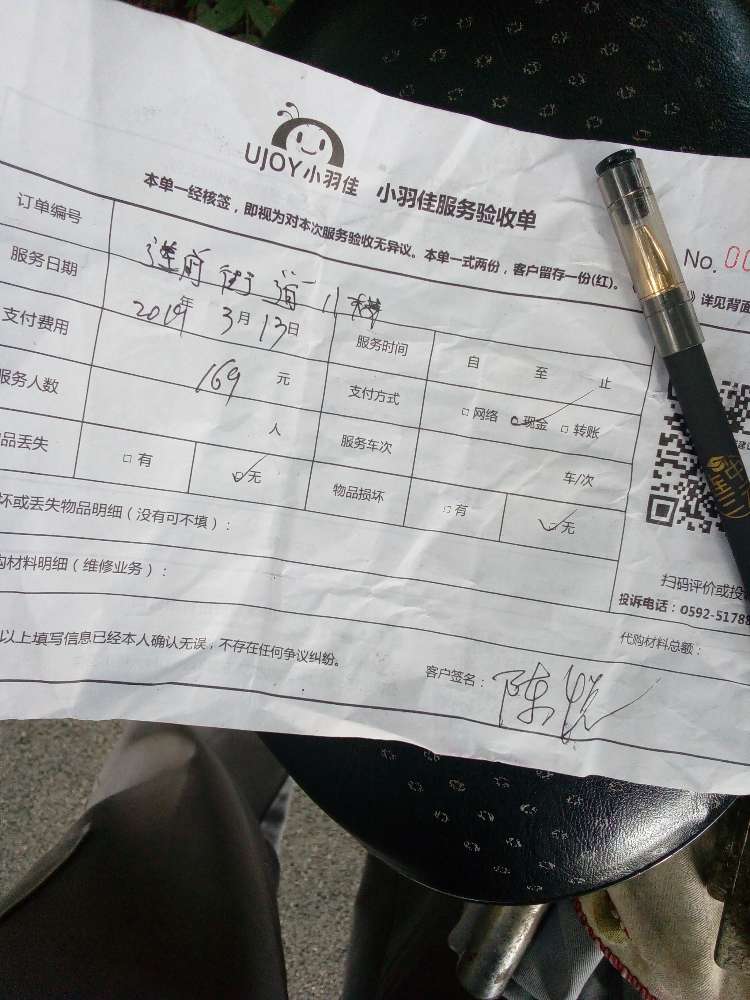 UJOY小羽佳 小羽佳服务验收单
No. 00
本单一经核签，即视为对本次服务验收无异议。本单一式两份，客户留存一份(红)。
）详见背面
订单编号 莲前街道
服务日期 2019年3月13日 服务时间 自 至 止
支付费用 169元 支付方式 □网络 □现金 □转账
服务人数 人 服务车次 车/次
品丢失 □有 □无 物品损坏 □有 □无
坏或丢失物品明细（没有可不填）：
购材料明细（维修业务）：
扫码评价或投
投诉电话：0592-51788
代购材料总额：
以上填写信息已经本人确认无误，不存在任何争议纠纷。
客户签名：陈悦